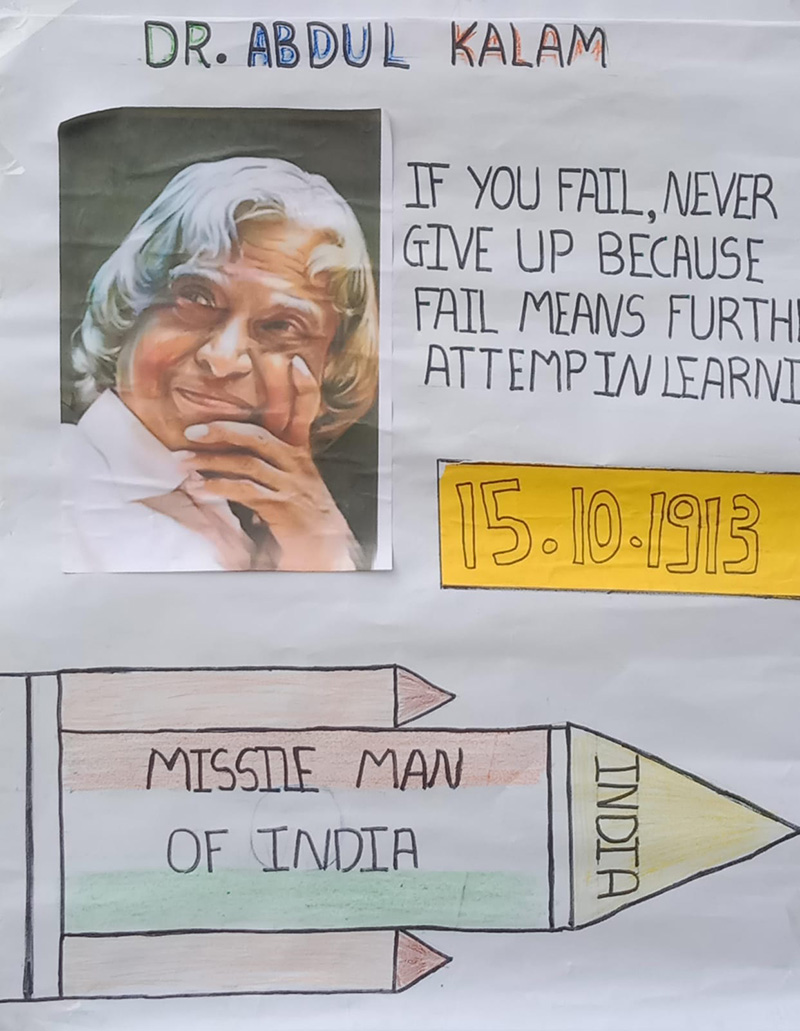 DR. ABDUL KALAM
IF YOU FAIL, NEVER
GIVE UP BECAUSE
FAIL MEANS FURTHE
ATTEMP IN LEARNI
15.10.1913
MISSILE MAN
OF INDIA
INDIA